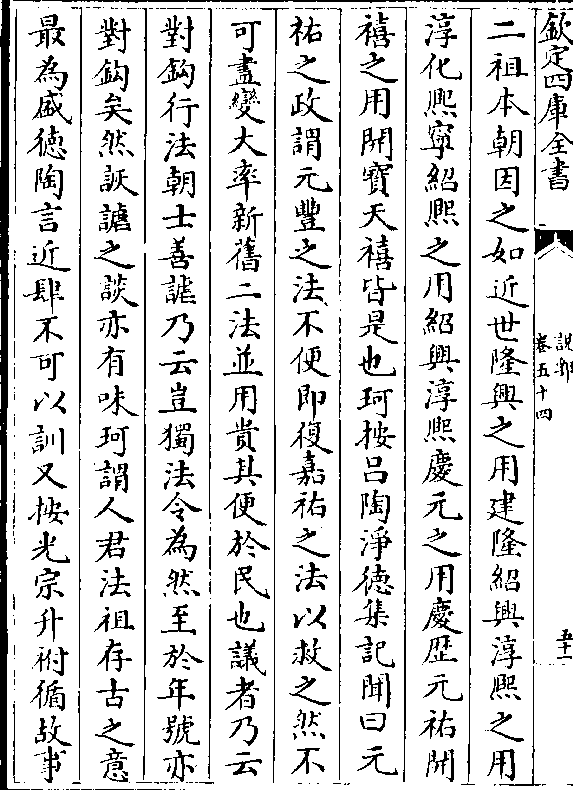 欽定四庫全書
說郛
卷五十四
五十一
二祖本朝因之如近世隆興之用建隆紹興淳熙之用
淳化熙寧紹熙之用紹興淳熙慶元之用慶歴元祐開
禧之用開寶天禧皆是也珂按呂陶淨徳集記聞曰元
祐之政謂元豐之法不便即復嘉祐之法以救之然不
可盡變大率新舊二法並用貴其便於民也議者乃云
對鈎行法朝士善謔乃云豈獨法令為然至於年號亦
對鈎矣然詼謔之談亦有味珂謂人君法祖存古之意
最為盛徳陶言近肆不可以訓又按光宗升祔循故事